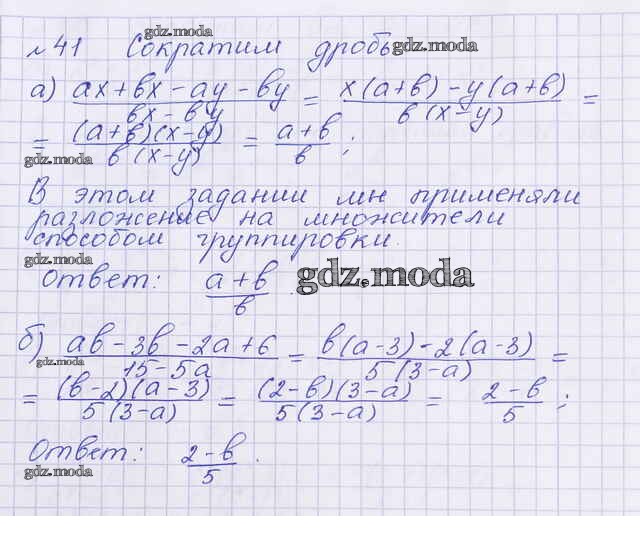 gdz.moda
№41 Сократим дробь gdz.moda
а) (ax+bx-ay-by)/(bx-by) = (x(a+b)-y(a+b))/(b(x-y)) =
= ((a+b)(x-y))/(b(x-y)) = (a+b)/b ;
gdz.moda
В этом задании мы применяли
разложение на множители
способом группировки.
gdz.moda
Ответ: (a+b)/b . gdz.moda
б) (ab-3b-2a+6)/(15-5a) = (b(a-3)-2(a-3))/(5(3-a)) =
gdz.moda
= ((b-2)(a-3))/(5(3-a)) = ((2-b)(3-a))/(5(3-a)) = (2-b)/5 ;
Ответ: (2-b)/5 .
gdz.moda